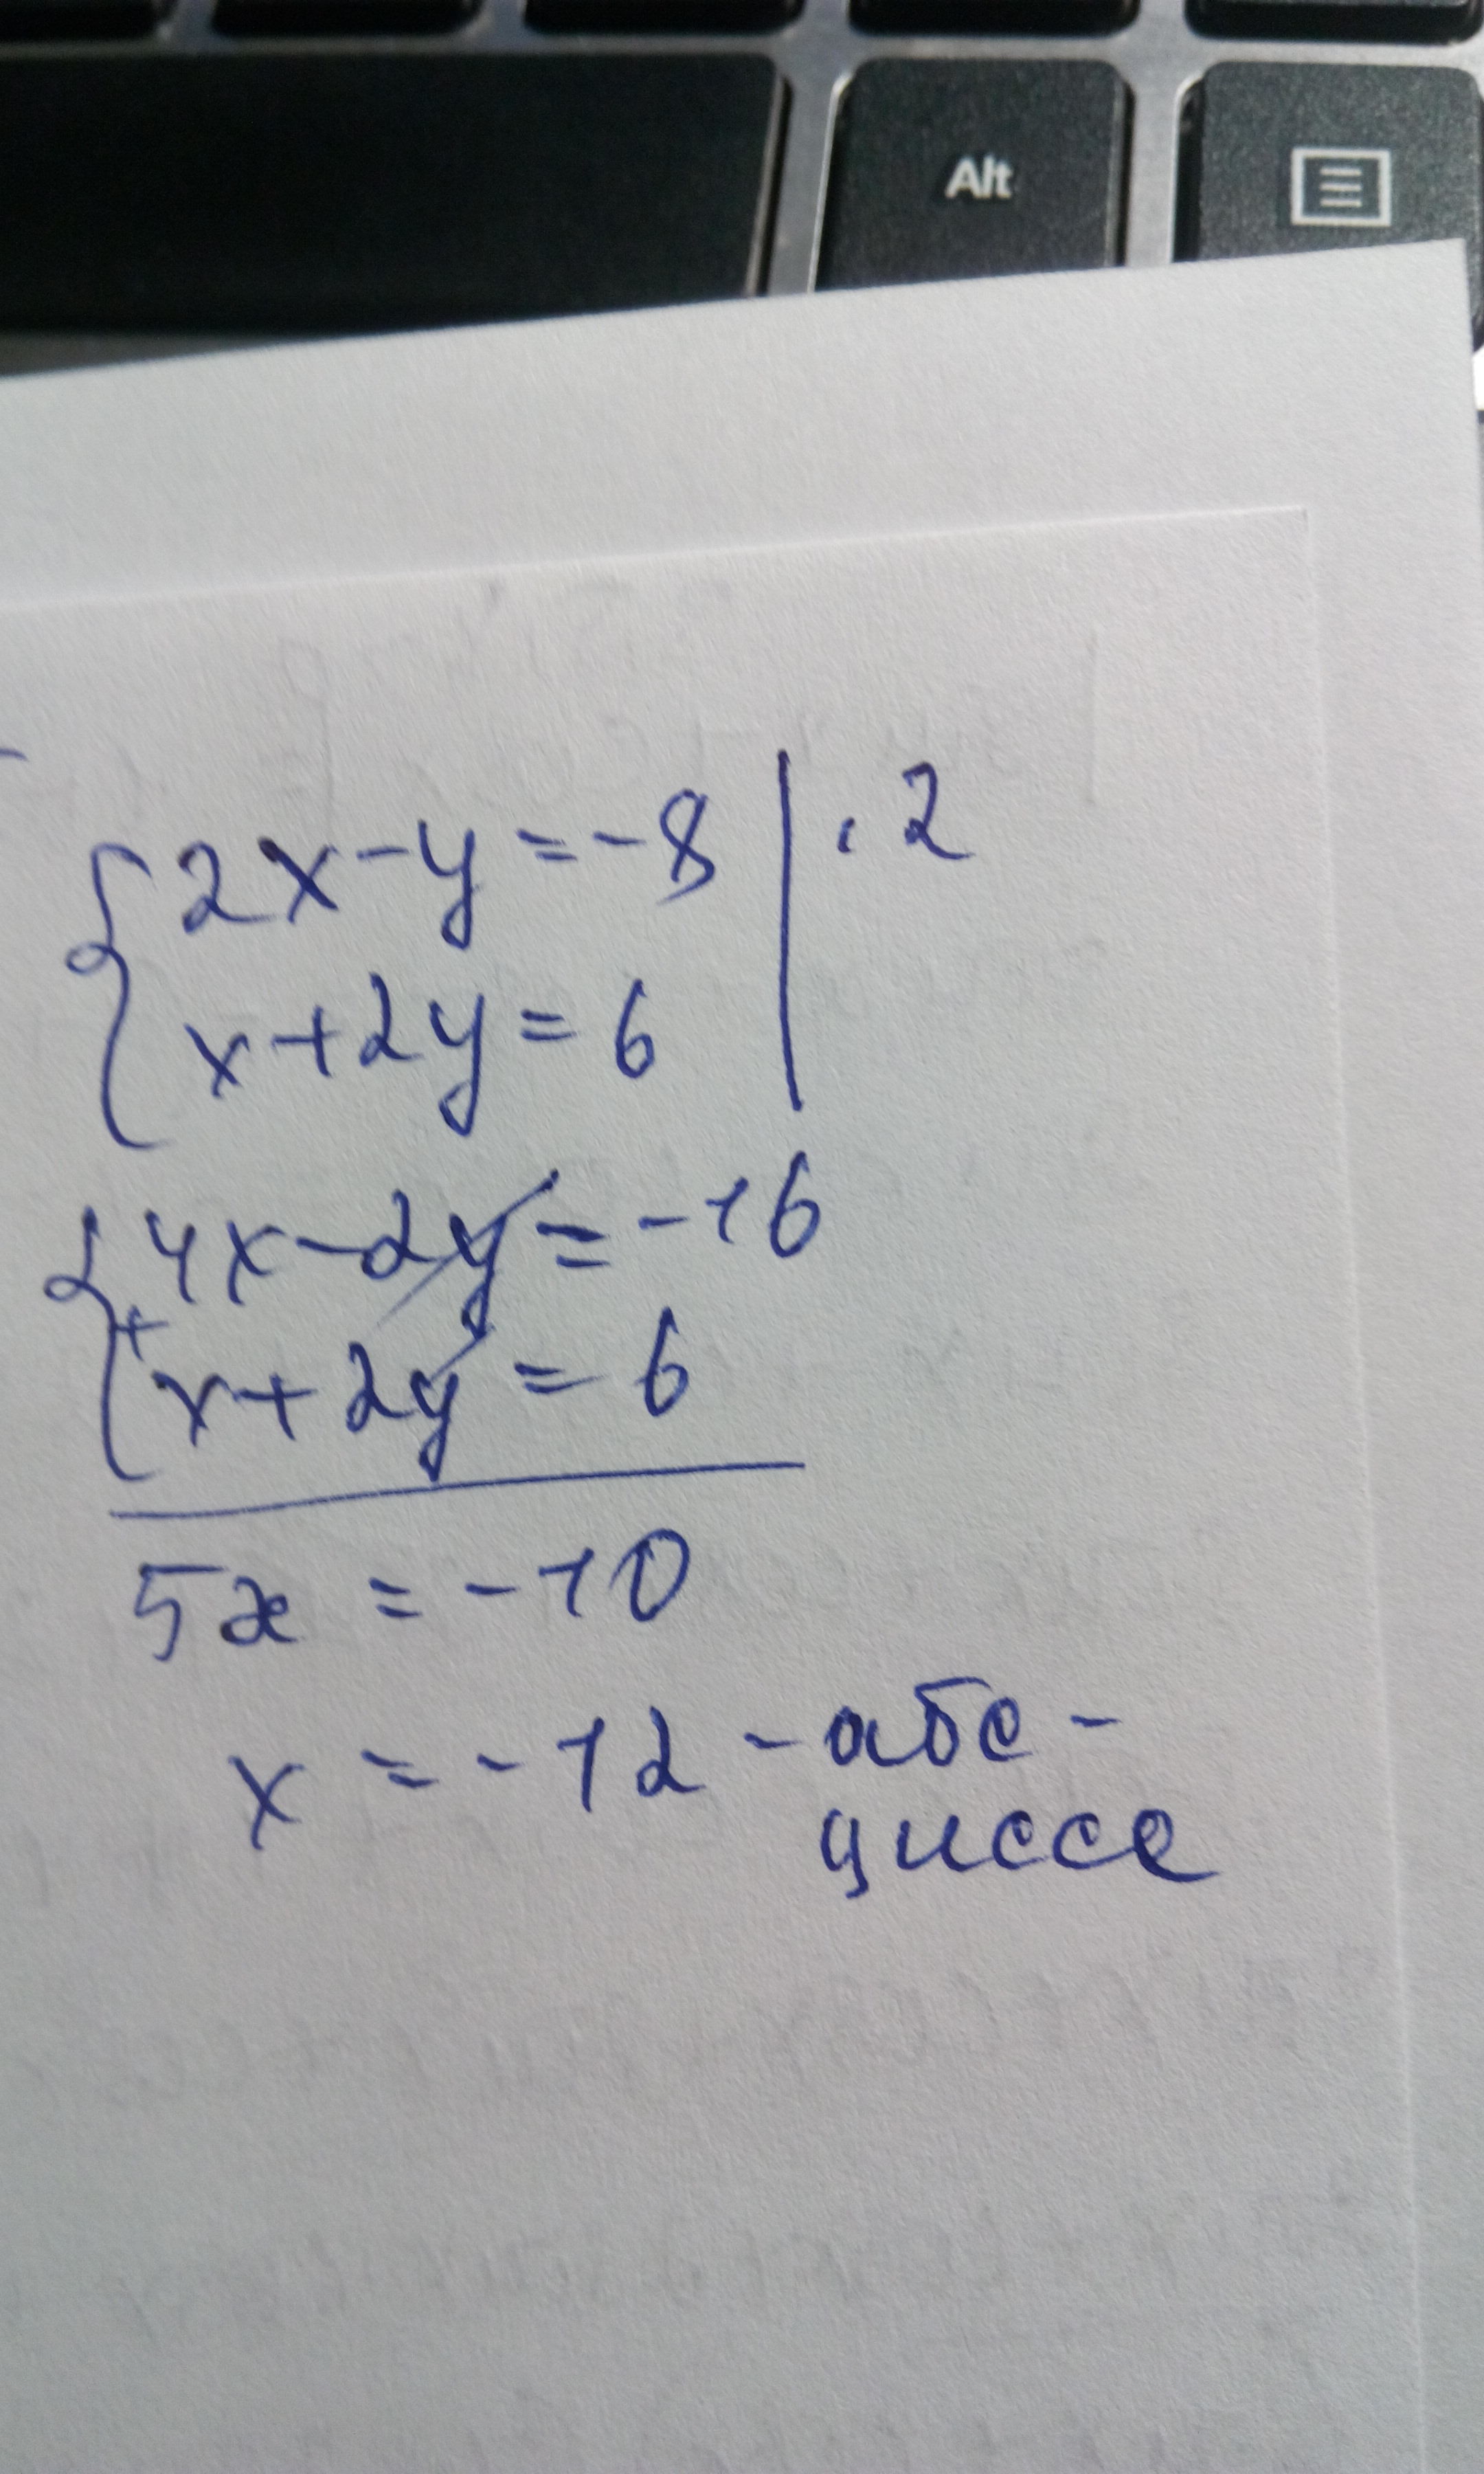 Alt
2x-y=-8 | · 2
x+2y=6
4x-2y=-16
+
x+2y=6
5x=-10
x=-12-абс-
цисса